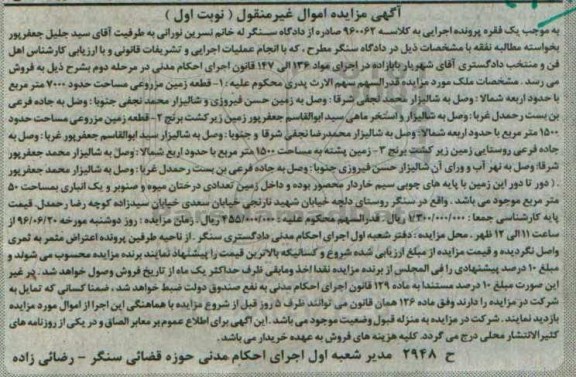 آگهی مزایده اموال غیرمنقول ( نوبت اول )
به موجب یک فقره پرونده اجرایی به کلاسه ۹۶۰۰۶۲ صادره از دادگاه سنگر له خانم نسرین نورانی به طرفیت آقای سید جلیل جعفرپور
بخواسته مطالبه نفقه با مشخصات ذیل در دادگاه سنگر مطرح ، که با انجام عملیات اجرایی و تشریفات قانونی و با ارزیابی کارشناس اهل
فن و منتخب دادگستری آقای شهریار بابازاده در اجرای مواد ۱۳۶ الی ۱۴۷ قانون اجرای احکام مدنی در مرحله دوم بشرح ذیل به فروش
می رسد . مشخصات ملک مورد مزایده قدرالسهم سهم الارث پدری محکوم علیه : ۱- قطعه زمین مزروعی مساحت حدود ۷۰۰۰ متر مربع
با حدود اربعه شمالا : وصل به شالیزار محمد نجفی شرقا : وصل به زمین حسن فیروزی و شالیزار محمد نجفی جنوبا : وصل به جاده فرعی
بن بست رحمدل غربا : وصل به شالیزار و استخر ماهی سید ابوالقاسم جعفرپور زمین زیر کشت برنج ۲- قطعه زمین مزروعی مساحت حدود
۱۵۰۰ متر مربع با حدود اربعه شمالا : وصل به شالیزار محمدرضا نجفی شرقا و جنوبا : وصل به شالیزار سید ابوالقاسم جعفرپور غربا : وصل به
جاده فرعی روستایی زمین زیر کشت برنج ۳- زمین پشته به مساحت ۱۵۰۰ متر مربع با حدود اربع شمالا : وصل به شالیزار محمد جعفرپور
شرقا: وصل به نهر آب و ورای آن شالیزار حسن فیروزی جنوبا : وصل به جاده فرعی بن بست رحمدل غربا : وصل به شالیزار محمد جعفرپور
. ( دور تا دور این زمین با پایه های چوبی سیم خاردار محصور بوده و داخل زمین تعدادی درختان میوه و صنوبر و یک انباری بمساحت ۵۰
متر مربع موجود می باشد . واقع در سنگر روستای دلچه خیابان شهید نارنجی خیابان سعدی خیابان سیدزاده کوچه رضا رحمدل. قیمت
پایه کارشناسی جمعا : ۷/۳۰۰/۰۰۰/۰۰۰ ریال . قدرالسهم محکوم علیه : ۴۵۵/۰۰۰/۰۰۰ ریال. زمان مزایده : روز دوشنبه مورخه ۹۶/۰۶/۲۰ از
ساعت ۱۱ الی ۱۲ ظهر . محل مزایده : دفتر شعبه اول اجرای احکام مدنی دادگستری سنگر . از ناحیه طرفین پرونده اعتراض مثمر به ثمری
واصل نگردیده و قیمت مزایده از مبلغ ارزیابی شده شروع و کسانیکه بالاترین قیمت را پیشنهاد نمایند برنده مزایده محسوب می شوند و
مبلغ ۱۰ درصد پیشنهادی را فی المجلس از برنده مزایده نقدا اخذ ومابقی ظرف حداکثر یک ماه از تاریخ فروش وصول خواهد شد . در غیر
این صورت مبلغ ۱۰ درصد مستندا به ماده ۱۲۹ قانون اجرای احکام مدنی به نفع صندوق دولت ضبط خواهد شد ، ضمنا کسانی که تمایل به
شرکت در مزایده را دارند وفق ماده ۱۲۶ همان قانون می توانند ظرف ۵ روز قبل از شروع مزایده با هماهنگی این اجرا از اموال مورد مزایده
بازدید نمایند . شرکت در مزایده به منزله قبول وضعیت موجود می باشد . این آگهی برای اطلاع عموم بر معابر الصاق و در یکی از روزنامه های
کثیرالانتشار محلی درج می گردد. کلیه هزینه های فروش به عهده خریدار می باشد .
ح ۲۹۴۸ مدیر شعبه اول اجرای احکام مدنی حوزه قضائی سنگر - رضائی زاده